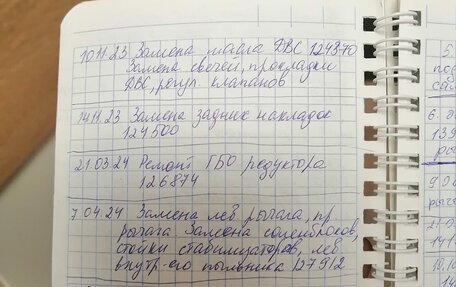 10.11.23 Замена масла ДВС 124370
Замена свечей, прокладки
ДВС, регул. клапанов
14.11.23 Замена задних накладок
124500
21.03.24 Ремонт ГБО редуктора
126874
7.04.24 Замена лев рычага, пр.
рычага Замена саленблоков,
стойки стабилизаторов, лев
внутр-его пыльника 127912
5.
под
6.
139
9.0
21.0
141
10.10